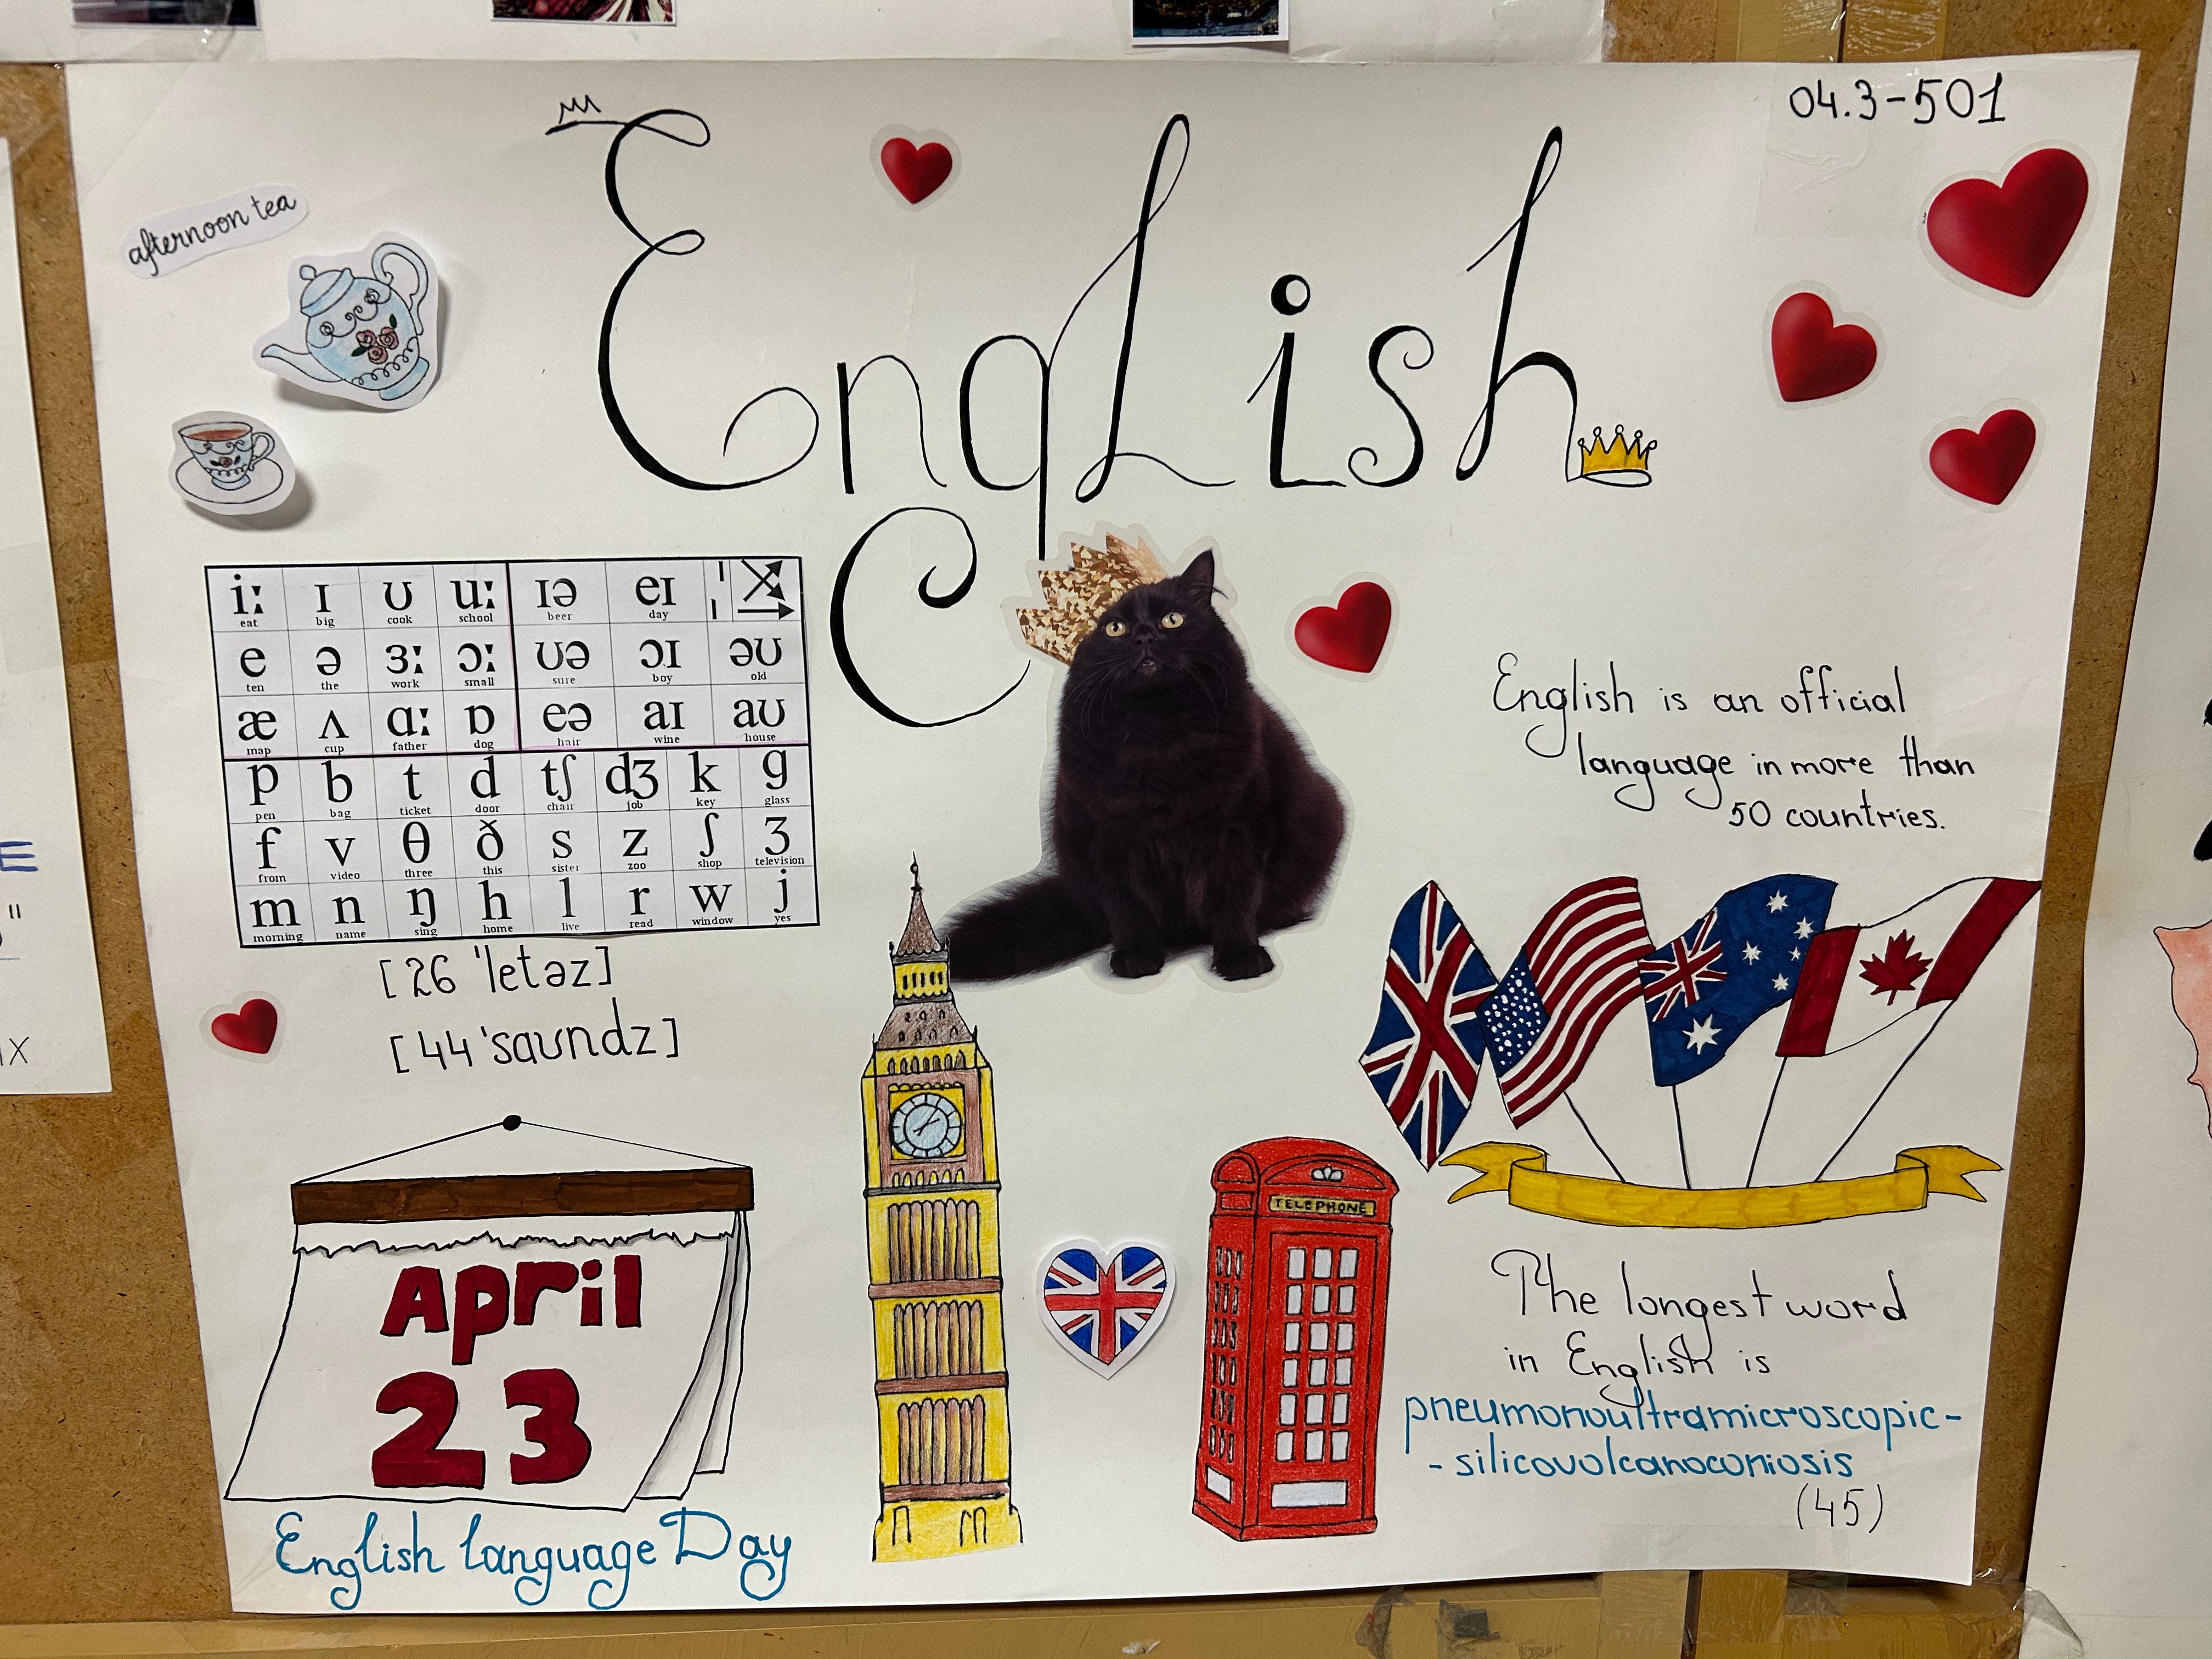 04.3-501
English
afternoon tea
iː ɪ ʊ uː ɪə eɪ
eat big cook school beer day
e ə ɜː ɔː ʊə ɔɪ əʊ
ten the work small sure boy old
æ ʌ ɑː ɒ eə aɪ aʊ
map cup father dog hair wine house
p b t d tʃ dʒ k g
pen bag ticket door chair job key glass
f v θ ð s z ʃ ʒ
from video three this sister zoo shop television
m n ŋ h l r w j
morning name sing home live read window yes
[26 'letəz]
[44 'saʊndz]
English is an official
language in more than
50 countries.
April
23
English language Day
TELEPHONE
The longest word
in English is
pneumonoultramicroscopic-
-silicovolcanoconiosis
(45)